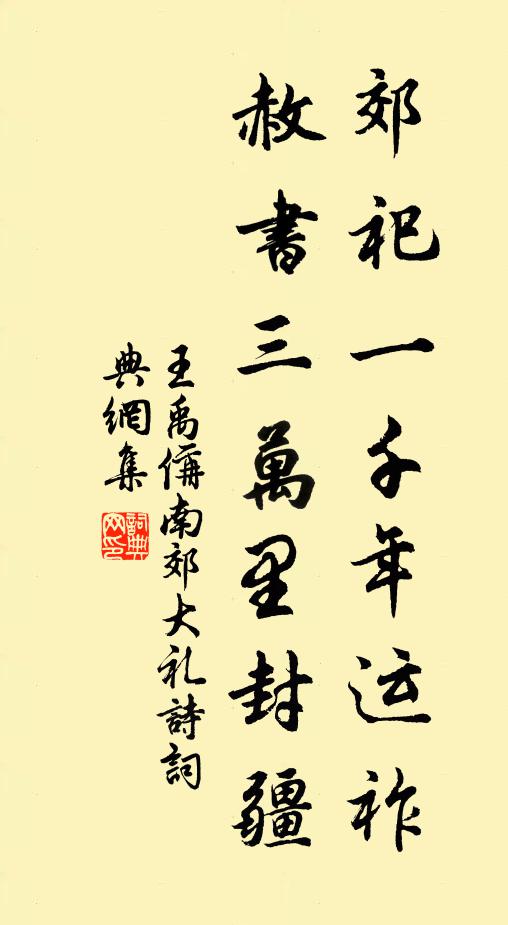 郊祀一千年运祚
赦書三萬里封疆
王禹偁南郊大礼詩詞
典網集
詞典网印